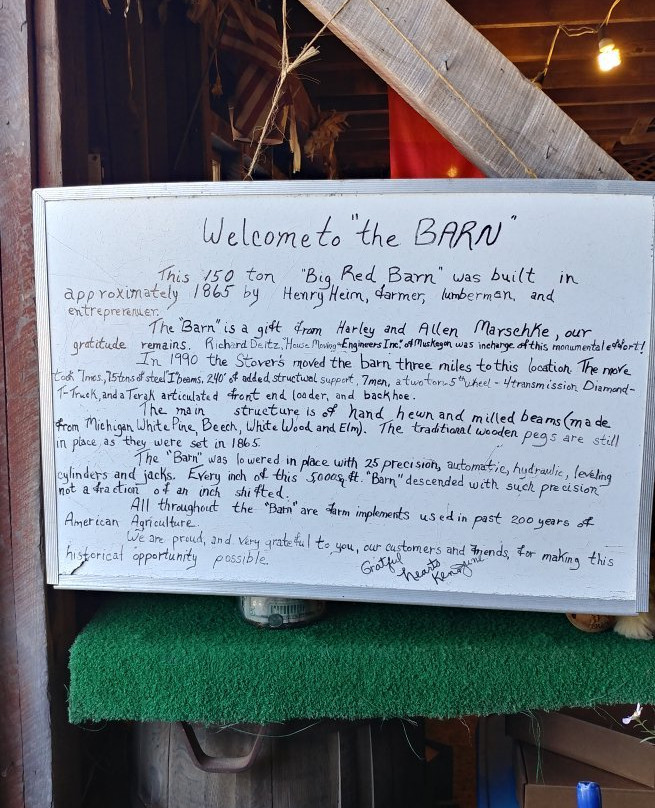 Welcome to "the BARN"
This 150 ton "Big Red Barn" was built in
approximately 1865 by Henry Heirn, farmer, lumberman, and
entrepreranuer.
The "Barn" is a gift from Harley and Allen Marschke, our
gratitude remains. Richard Deitz, "House Moving + Engineers Inc." of Muskegon was incharge of this monumental effort!
In 1990 the Stover's moved the barn three miles to this location. The move
took 7mos., 75 tons of steel "I" beams, 240' of added structual support, 7men, a two ton 5th wheel - 4 transmission Diamond-
T-Truck, and a Terak articulated front end loader, and backhoe.
The main structure is of hand hewn and milled beams (made
from Michigan White Pine, Beech, White Wood and Elm). The traditional wooden pegs are still
in place as they were set in 1865.
The "Barn" was lowered in place with 25 precision, automatic, hydraulic, leveling
cylinders and jacks. Every inch of this 5000sq.ft. "Barn" descended with such precision
not a fraction of an inch shifted.
All throughout the "Barn" are farm implements used in past 200 years of
American Agriculture.
We are proud, and very grateful to you, our customers and friends, for making this
historical opportunity possible.
Gratful
hearts